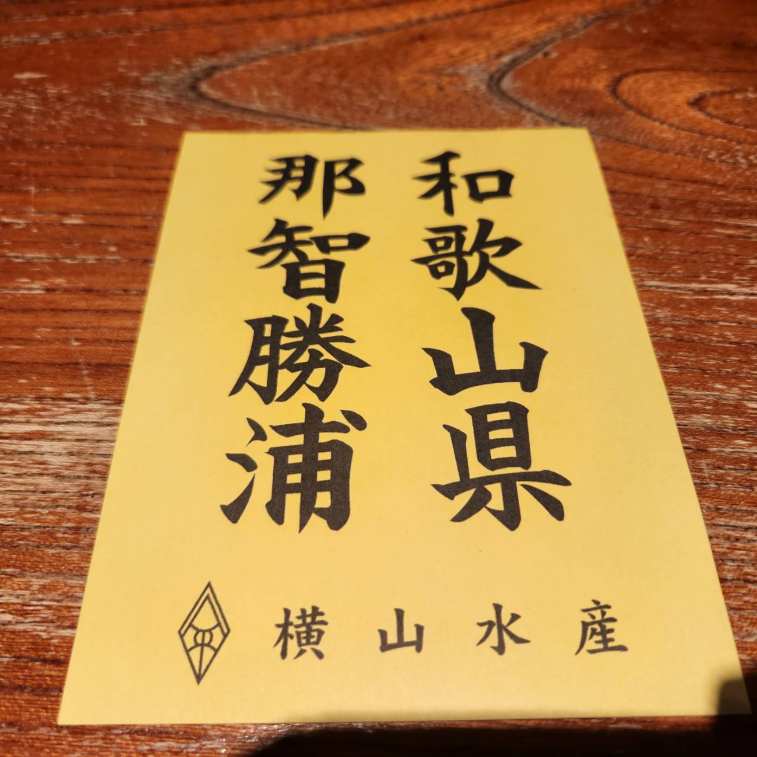 和歌山県
那智勝浦
横山水産